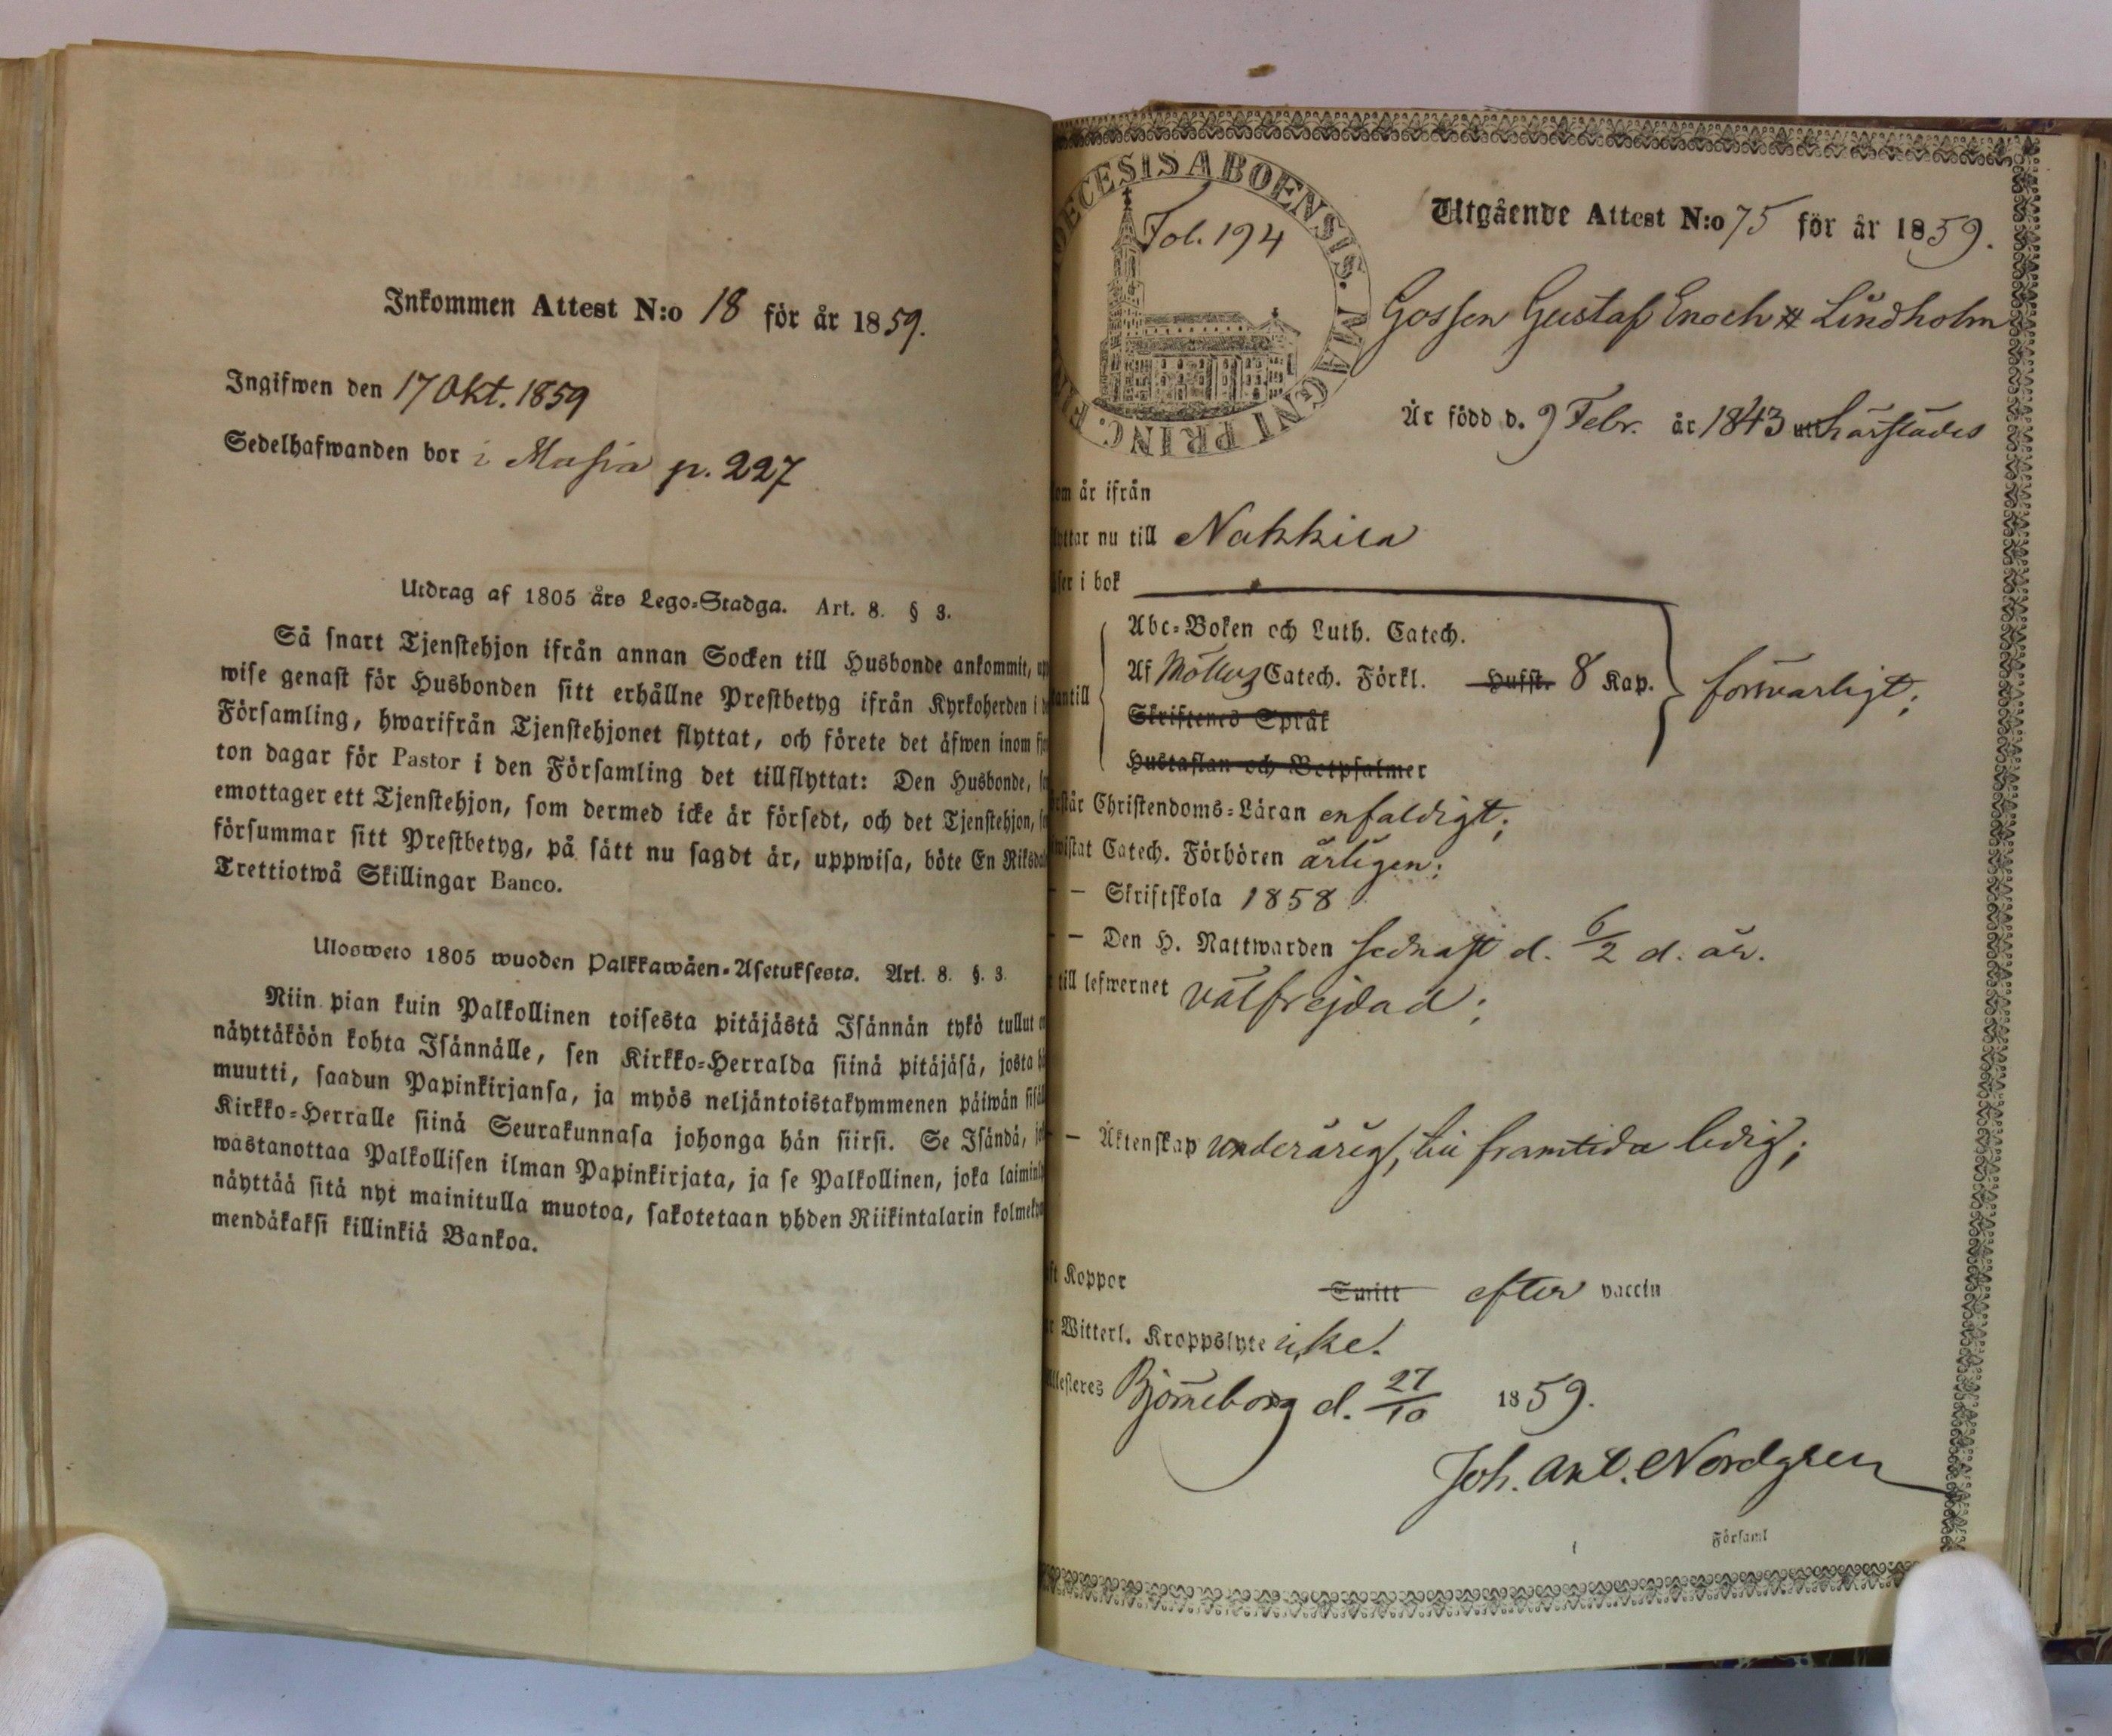 Inkommen Attest N:o 18 för år 1859.
Ingifwen den 17 Okt. 1859
Sedelhafwanden bor i Masia p. 227
Utdrag af 1805 års Lego-Stadga. Art. 8. § 3.
Så snart Tjenstehjon ifrån annan Socken till Husbonde ankommit, up
wise genast för Husbonden sitt erhållne Prestbetyg ifrån Kyrkoherden i
Församling, hwarifrån Tjenstehjonet flyttat, och förete det äfwen inom
ton dagar för Pastor i den Församling det tillflyttat: Den Husbonde,
emottager ett Tjenstehjon, som dermed icke är försedt, och det Tjenstehjon,
försummar sitt Prestbetyg, på sätt nu sagdt är, uppwisa, böte En Riksda
Trettiotwå Skillingar Banco.
Ulosweto 1805 wuoden Palkkawäen-Asetuksesta. Art. 8. §. 3.
Niin pian kuin Palkollinen toisesta pitäjästä Isännän tykö tullut
näyttäköön kohta Isännälle, sen Kirkko-Herralda siinä pitäjäsä, josta
muutti, saadun Papinkirjansa, ja myös neljäntoistakymmenen päiwän sisä
Kirkko-Herralle siinä Seurakunnasa johonga hän siirsi. Se Isändä,
wastanottaa Palkollisen ilman Papinkirjata, ja se Palkollinen, joka laimin
näyttää sitä nyt mainitulla muotoa, sakotetaan yhden Riikintalarin kolmeky
mendäkaksi killinkiä Bankoa.
OECESIS ABOENSIS. MAGNI PRINC.
Fol. 194
Utgående Attest N:o 75 för år 1859.
Gossen Gustaf Enoch Lindholm
Är född d. 9 Febr. år 1843 härstädes
om är ifrån
yttar nu till Nakkila
äser i bok
Abc-Boken och Luth. Catech.
antill Af Möllers Catech. Förkl. Hufst. 8 Kap. försvarligt;
Skriftenes Språk
Hustaflan och Botpsalmer
rstår Christendoms-Läran enfaldigt;
wistat Catech. Förhören årligen;
— Skriftskola 1858
— Den H. Nattwarden sednast d. 6/2 d. år.
till lefwernet välfrejdad;
— Äktenskap underårig, till framtida ledig;
ft Koppor Smitt efter vaccin
Witterl. Kroppslyte icke.
Attesteres Björneborg d. 27/10 1859.
Joh. Ant. Nordgren
Församl